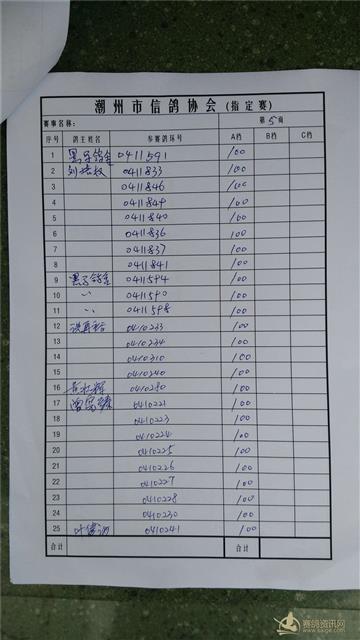 潮州市信鸽协会(指定赛)
赛事名称： 第5页
序号 鸽主姓名 参赛鸽环号 A档 B档 C档
1 0411591 100
2 0411833 100
3 0411846 100
4 0411849 100
5 0411840 100
6 0411836 100
7 0411837 100
8 0411841 100
9 0411594 100
10 〃 0411590 100
11 〃 0411598 100
12 0410233 100
13 0410234 100
14 0410310 100
15 0410240 100
16 0410280 100
17 0410221 100
18 0410223 100
19 0410224 100
20 0410225 100
21 0410226 100
22 0410227 100
23 0410228 100
24 0410230 100
25 0410241 100
合计 合计
赛鸽资讯网
www.saige.com